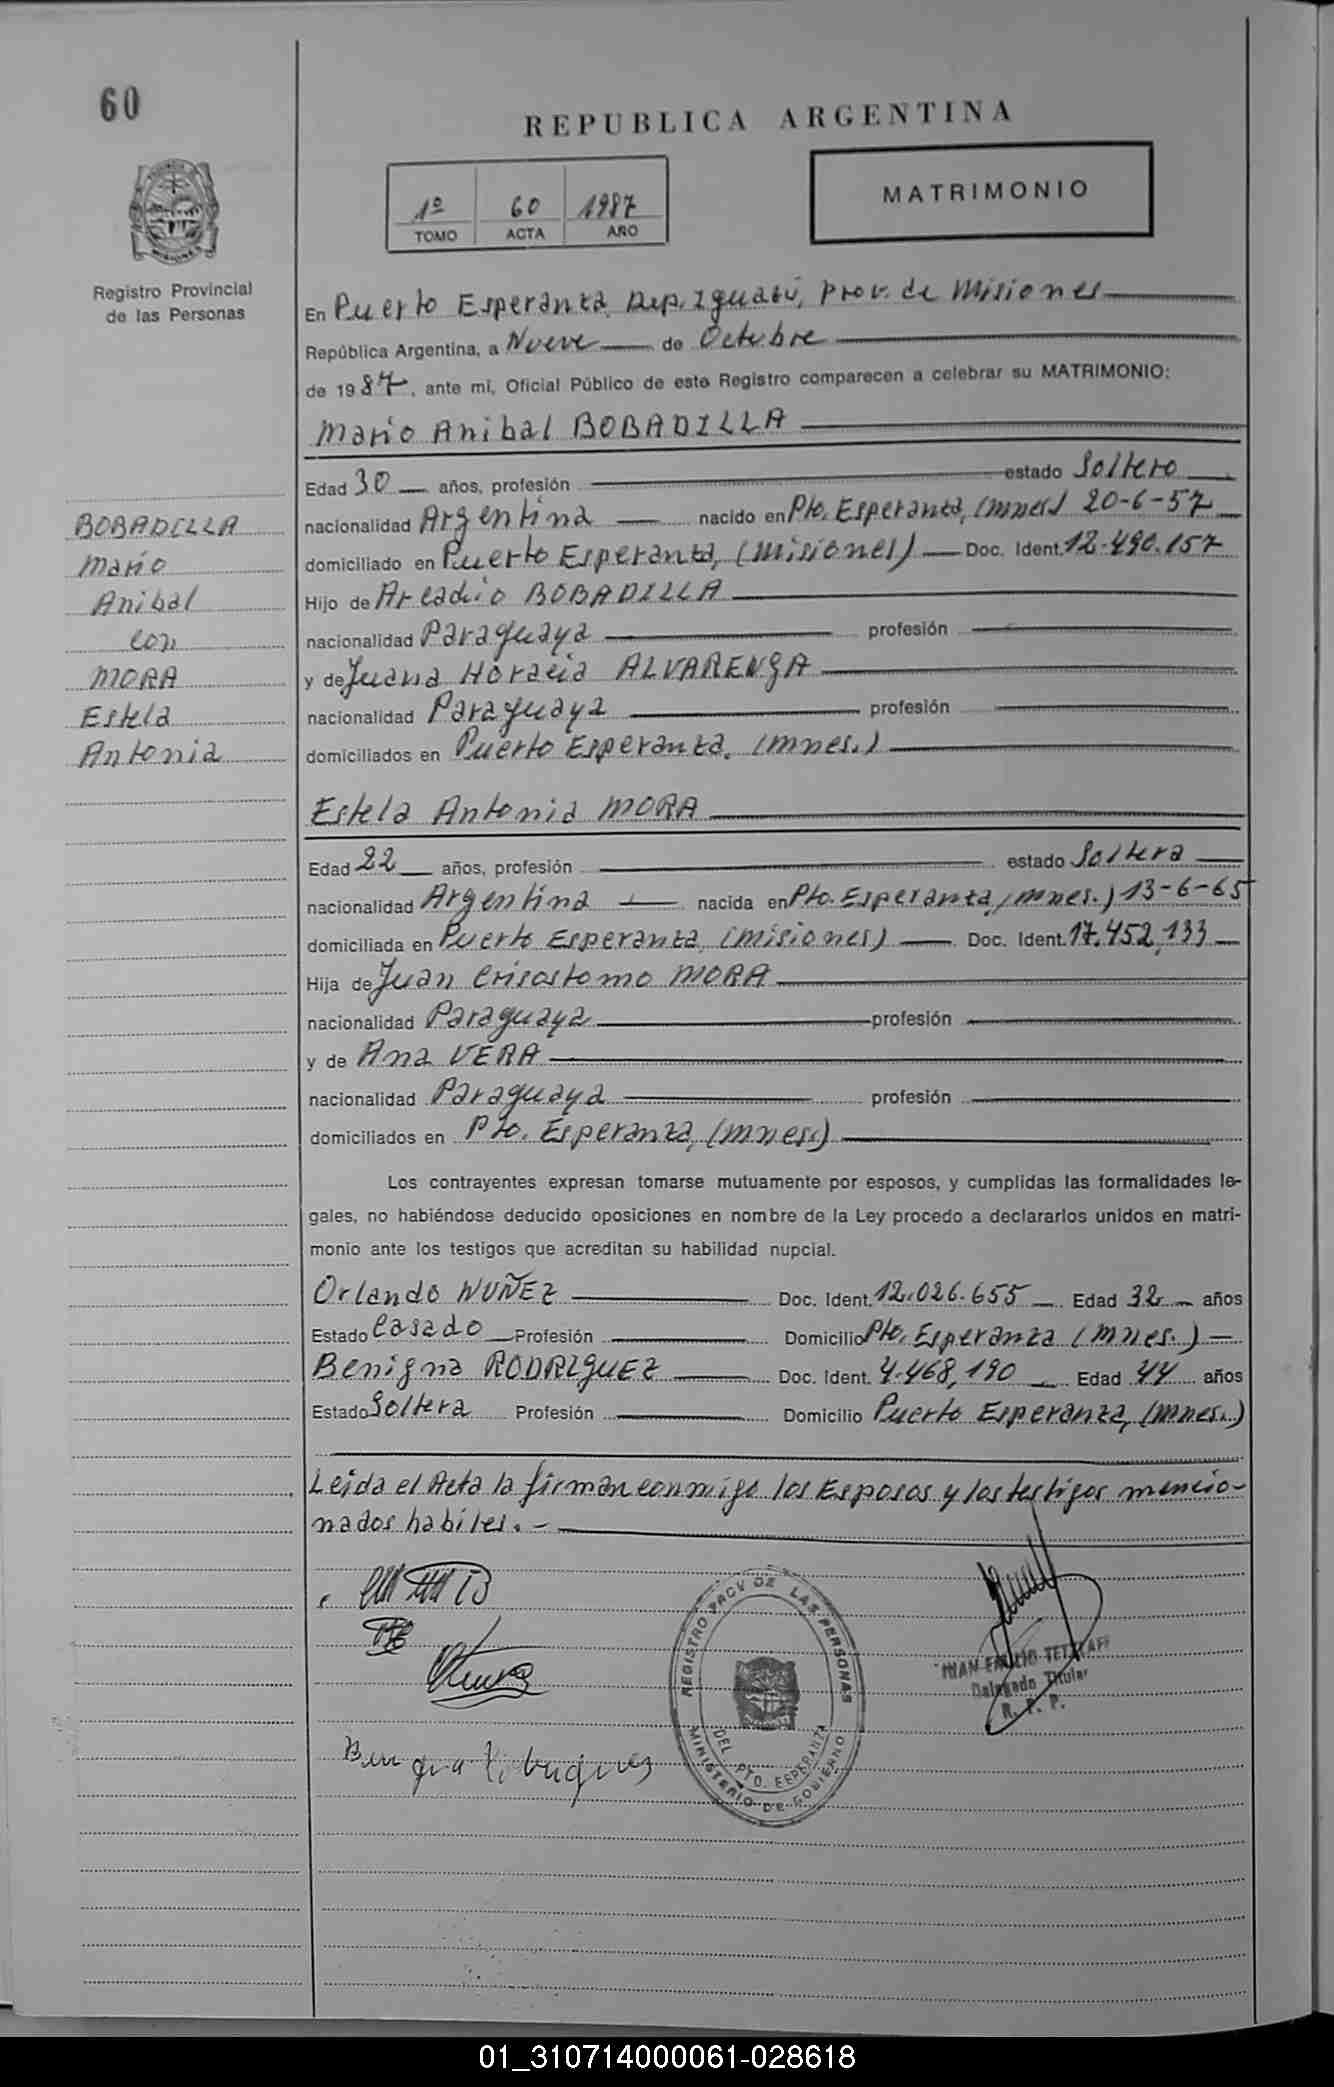 60
REPUBLICA ARGENTINA
1º 60 1987
TOMO ACTA AÑO
MATRIMONIO
Registro Provincial
de las Personas
En Puerto Esperanza, Dep. Iguazú, Prov. de Misiones
República Argentina, a Nueve de Octubre
de 1987, ante mi, Oficial Público de este Registro comparecen a celebrar su MATRIMONIO:
Mario Anibal BOBADILLA
Edad 30 años, profesión estado Soltero
nacionalidad Argentina nacido en Pto. Esperanza, (Mnes.) 20-6-57
domiciliado en Puerto Esperanza, (Misiones) Doc. Ident. 12.490.157
Hijo de Arcadio BOBADILLA
nacionalidad Paraguaya profesión
y de Juana Horacia ALVARENGA
nacionalidad Paraguaya profesión
domiciliados en Puerto Esperanza, (Mnes.)
BOBADILLA
Mario
Anibal
con
MORA
Estela
Antonia
Estela Antonia MORA
Edad 22 años, profesión estado Soltera
nacionalidad Argentina nacida en Pto. Esperanza, (Mnes.) 13-6-65
domiciliada en Puerto Esperanza, (Misiones) Doc. Ident. 17.452.133
Hija de Juan Crisostomo MORA
nacionalidad Paraguaya profesión
y de Ana VERA
nacionalidad Paraguaya profesión
domiciliados en Pto. Esperanza, (Mnes.)
Los contrayentes expresan tomarse mutuamente por esposos, y cumplidas las formalidades le-
gales, no habiéndose deducido oposiciones en nombre de la Ley procedo a declararlos unidos en matri-
monio ante los testigos que acreditan su habilidad nupcial.
Orlando NUÑEZ Doc. Ident. 12.026.655 Edad 32 años
Estado Casado Profesión Domicilio Pto. Esperanza (Mnes.)
Benigna RODRIGUEZ Doc. Ident. 4.468.190 Edad 44 años
Estado Soltera Profesión Domicilio Puerto Esperanza, (Mnes.)
Leida el Acta la firman conmigo los Esposos y los testigos mencio-
nados habiles.-
REGISTRO PROV DE LAS PERSONAS
DEL. PTO. ESPERANZA
MINISTERIO DE GOBIERNO
JUAN EMILIO TETZLAFF
Delegado Titular
R. P. P.
01_310714000061-028618